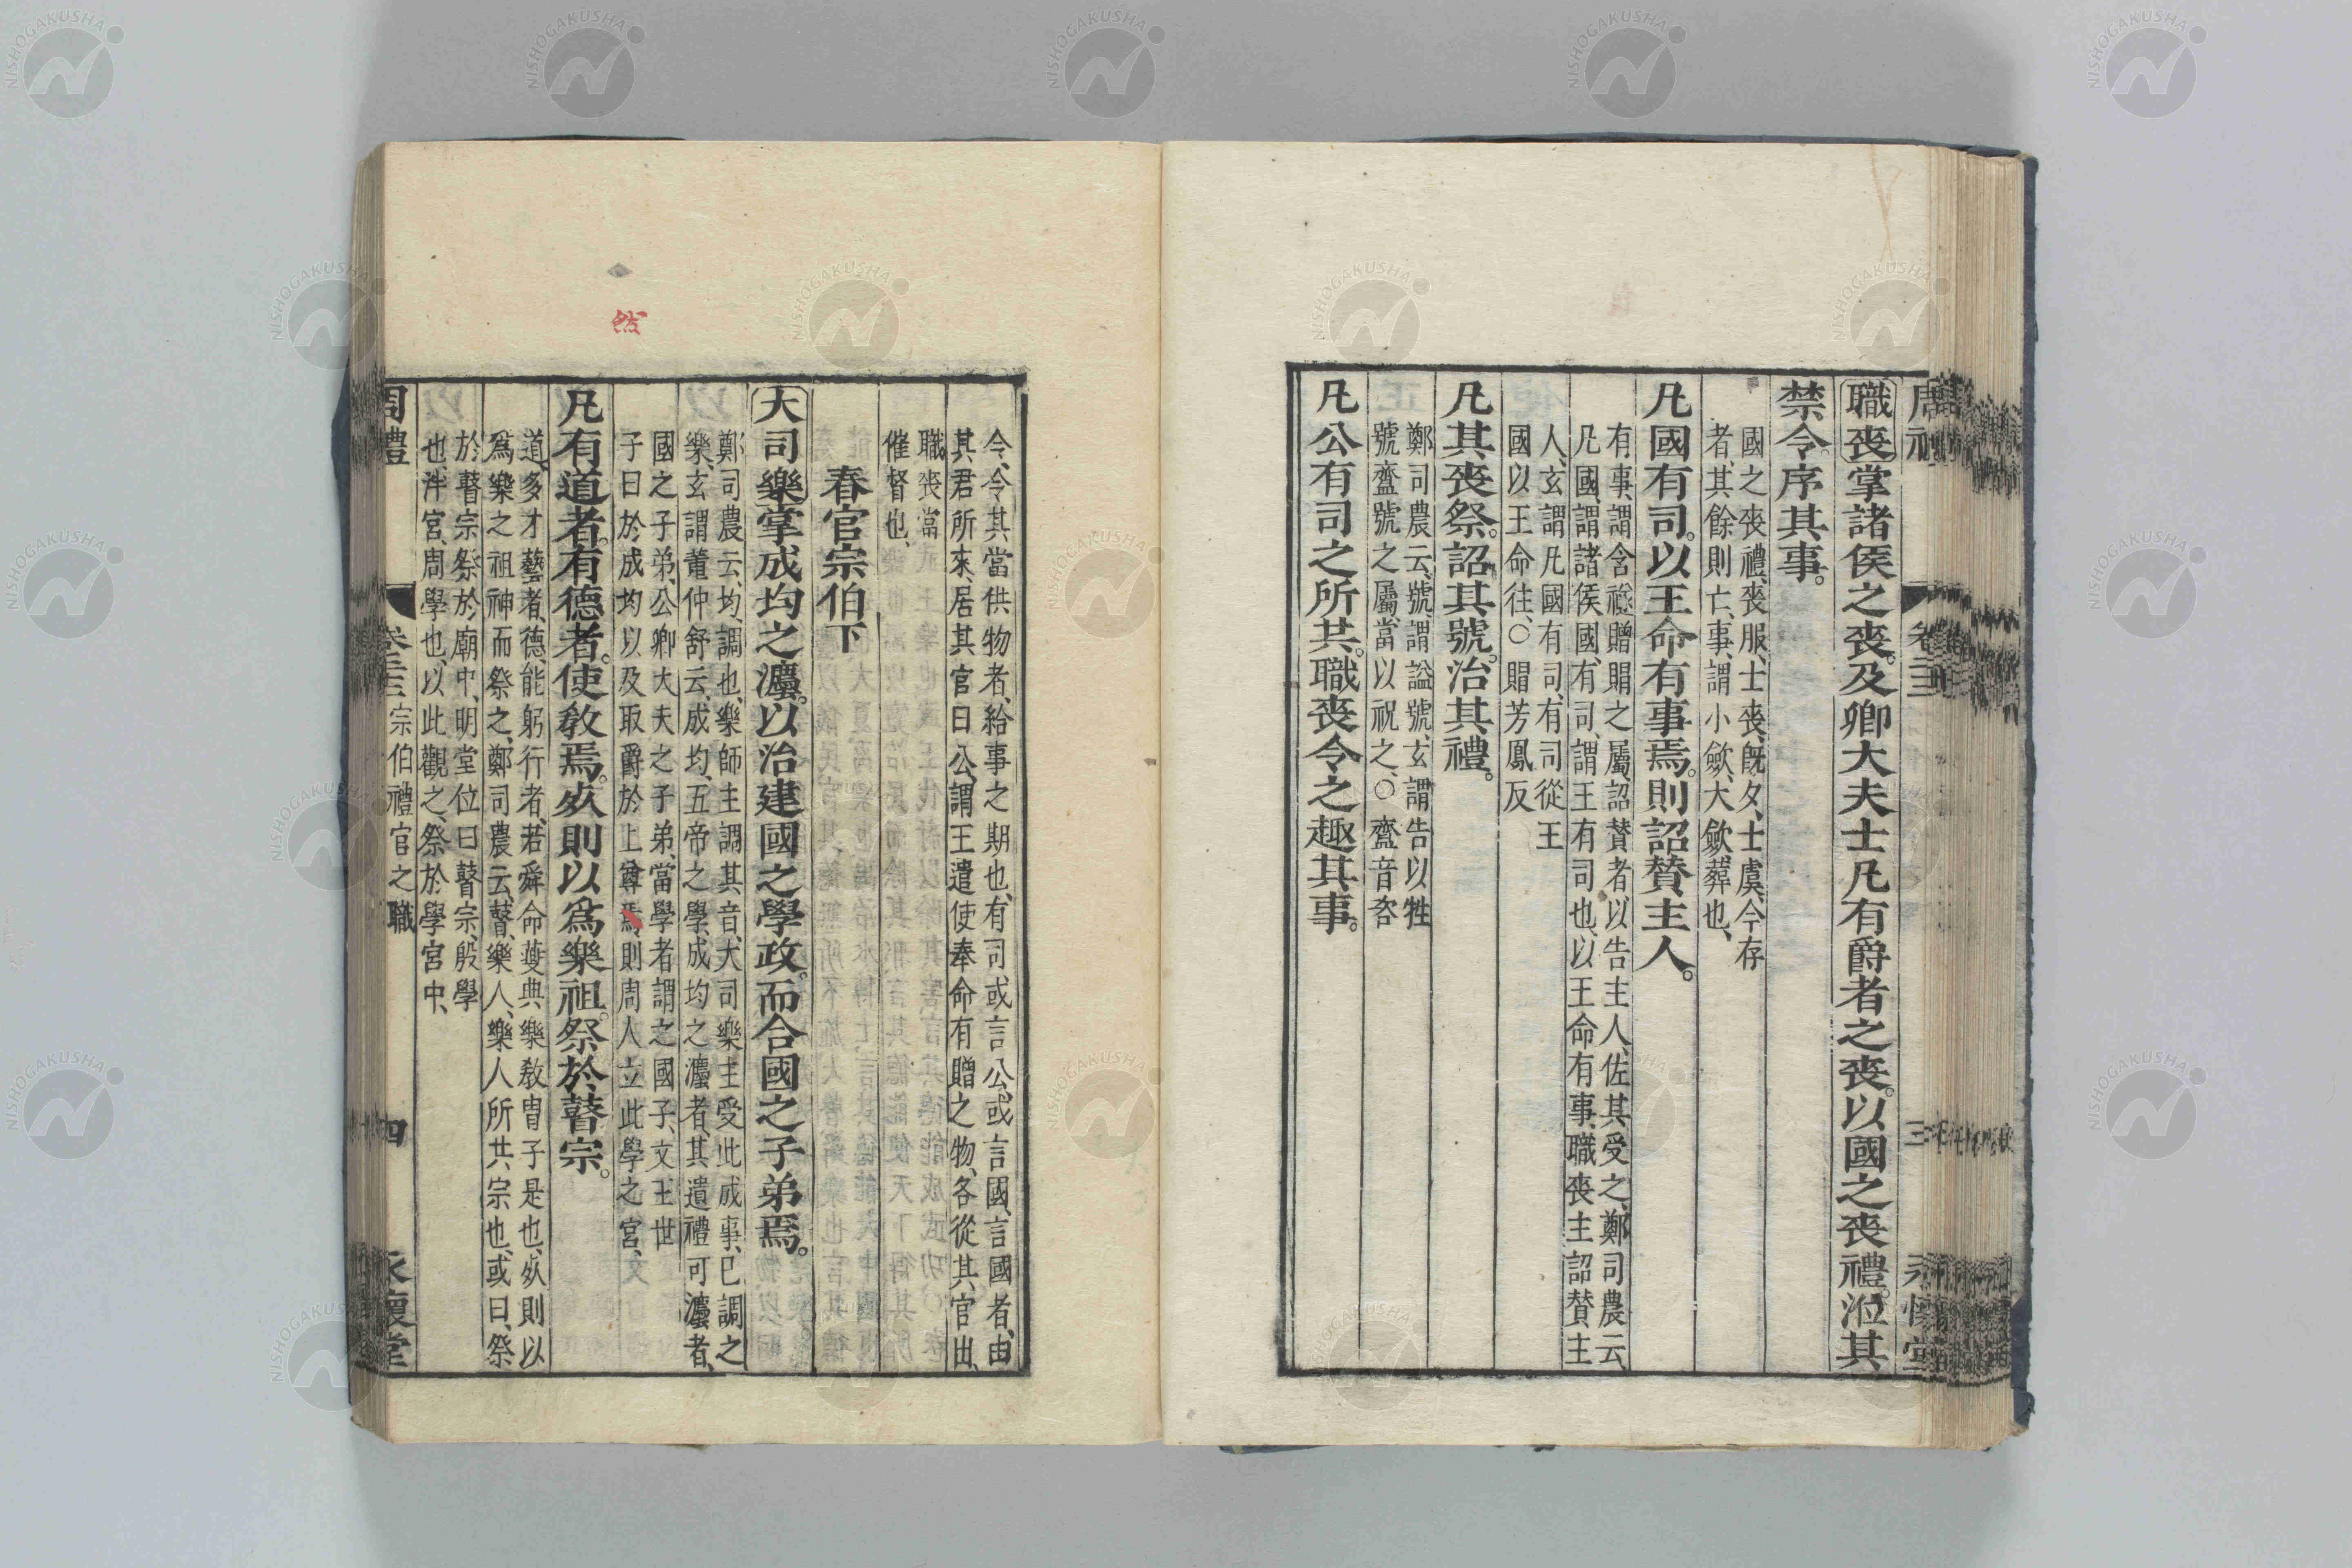 職喪掌諸侯之喪。及卿大夫士凡有爵者之喪。以國之喪禮。涖其
禁令。序其事。
國之喪禮、喪服、士喪、旣夕、士虞、今存
者、其餘則亡、事、謂小斂、大斂、葬也、
凡國有司。以王命有事焉。則詔贊主人。
有事、謂含襚贈賵之屬、詔贊者、以告主人、佐其受之、鄭司農云、
凡國、謂諸侯國、有司、謂王有司也、以王命有事、職喪主詔贊主
人、玄謂凡國有司、有司從王
國以王命往、○賵芳鳳反
凡其喪祭。詔其號。治其禮。
鄭司農云、號、謂謚號、玄謂告以牲
號齍號之屬、當以祝之、○齍音咨
凡公有司之所共。職喪令之趣其事。
令、令其當供物者、給事之期也、有司或言公、或言國、言國者、由
其君所來、居其官曰公、謂王遣使奉命有贈之物、各從其官出、
職喪當
催督也、
春官宗伯下
大司樂掌成均之灋。以治建國之學政。而合國之子弟焉。
鄭司農云、均、調也、樂師主調其音、大司樂主受此成事、已調之
樂、玄謂董仲舒云、成均、五帝之學、成均之灋者、其遺禮可灋者、
國之子弟、公卿大夫之子弟、當學者、謂之國子、文王世
子曰、於成均以及取爵於上尊焉、則周人立此學之宮、
凡有道者。有德者。使敎焉。𣦸則以爲樂祖。祭於瞽宗。
道、多才藝者、德、能躬行者、若舜命夔典樂敎胄子是也、𣦸則以
爲樂之祖神而祭之、鄭司農云、瞽、樂人、樂人所共宗也、或曰、祭
於瞽宗、祭於廟中、明堂位曰、瞽宗、殷學
也、泮宮、周學也、以此觀之、祭於學宮中、
周禮 卷二十二 宗伯禮官之職 四 永懷堂
然